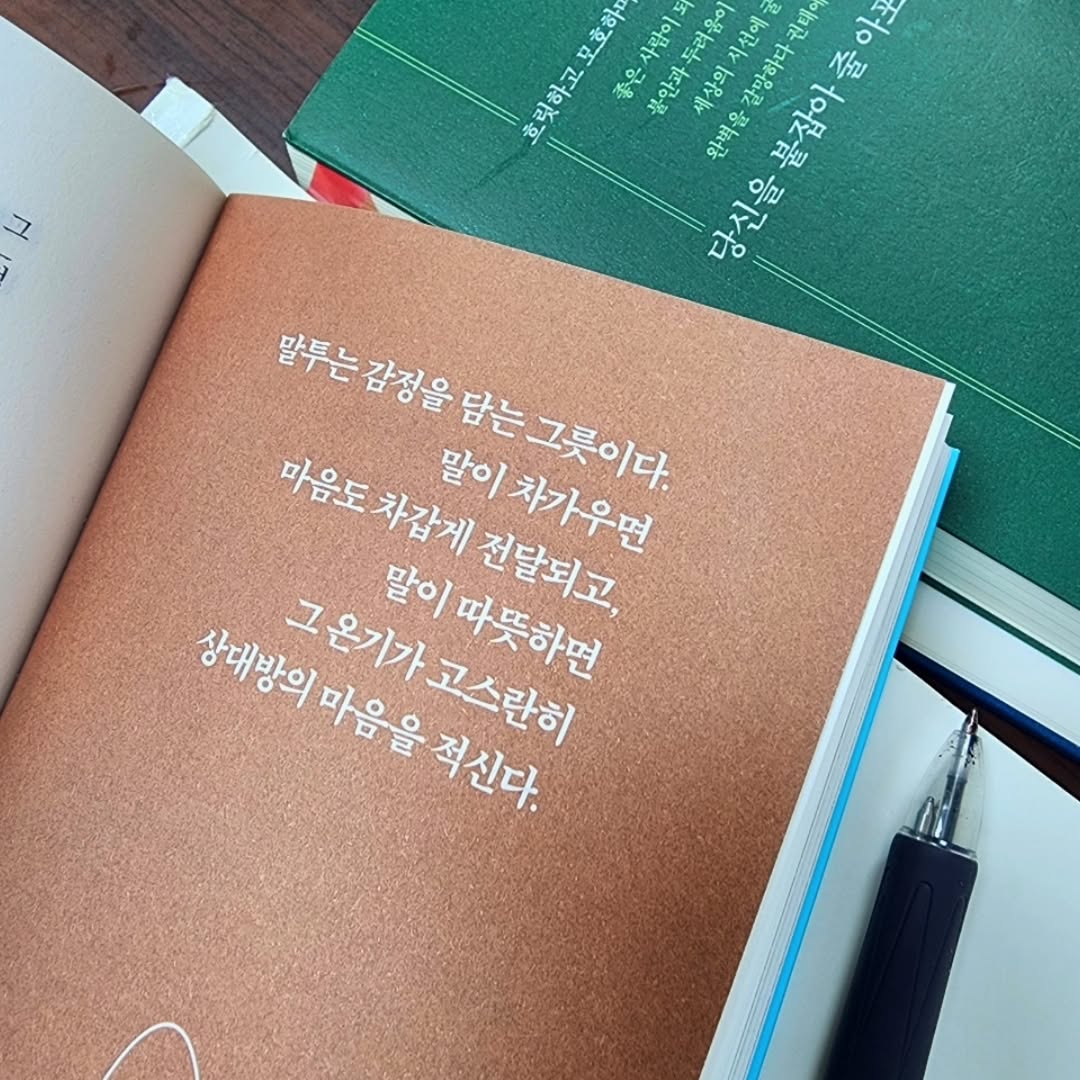 말투는 감정을 담는 그릇이다.
말이 차가우면
마음도 차갑게 전달되고,
말이 따뜻하면
그 온기가 고스란히
상대방의 마음을 적신다.
흐릿하고 모호하며
좋은 사람이 되
불안과 두려움이
세상의 시선에 굴
완벽을 갈망하다 권태에
당신을 붙잡아 줄 아포
그